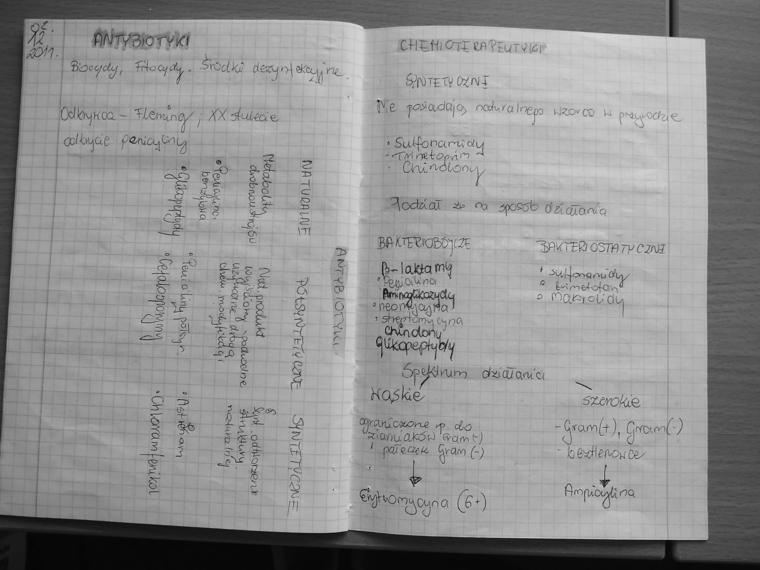 02.
12
2011.
ANTYBIOTYKI
Biocydy, Fitocydy. Środki dezynfekcyjne.
Odkrywca - Fleming; XX stulecie
odkrycie penicyliny
ANTYBIOTYKI
NATURALNE
Metabolity
drobnoustrojów
• Penicylina
benzylowa
• Glikopeptydy
PÓŁSYNTETYCZNE
Nat produkt
wyjściowy, pochodne
uzyskane drogą
chem. modyfikacji
• Penicyliny półsyn.
• Cefalosporyny
SYNTETYCZNE
Synt odtworzenie
struktury
naturalnej
•
• Chloramfenikol
CHEMIOTERAPEUTYKI
SYNTETYCZNE
Nie posiadają naturalnego wzorca w przyrodzie
• Sulfonamidy
- Trimetoprim
• Chinolony
Podział ze na sposób działania
BAKTERIOBÓJCZE
β-laktamy
• Penicylina
Aminoglikozydy
• neomycyna
• streptomycyna
chinolony
Glikopeptydy
BAKTERIOSTATYCZNE
• sulfonamidy
• trimetoprim
• makrolidy
Spektrum działania
Wąskie
ograniczone p. do
ziarniaków Gram(+)
i pałeczek Gram(-)
Erytromycyna (G+)
szerokie
- Gram(+), Gram(-)
- beztlenowce
Ampicylina